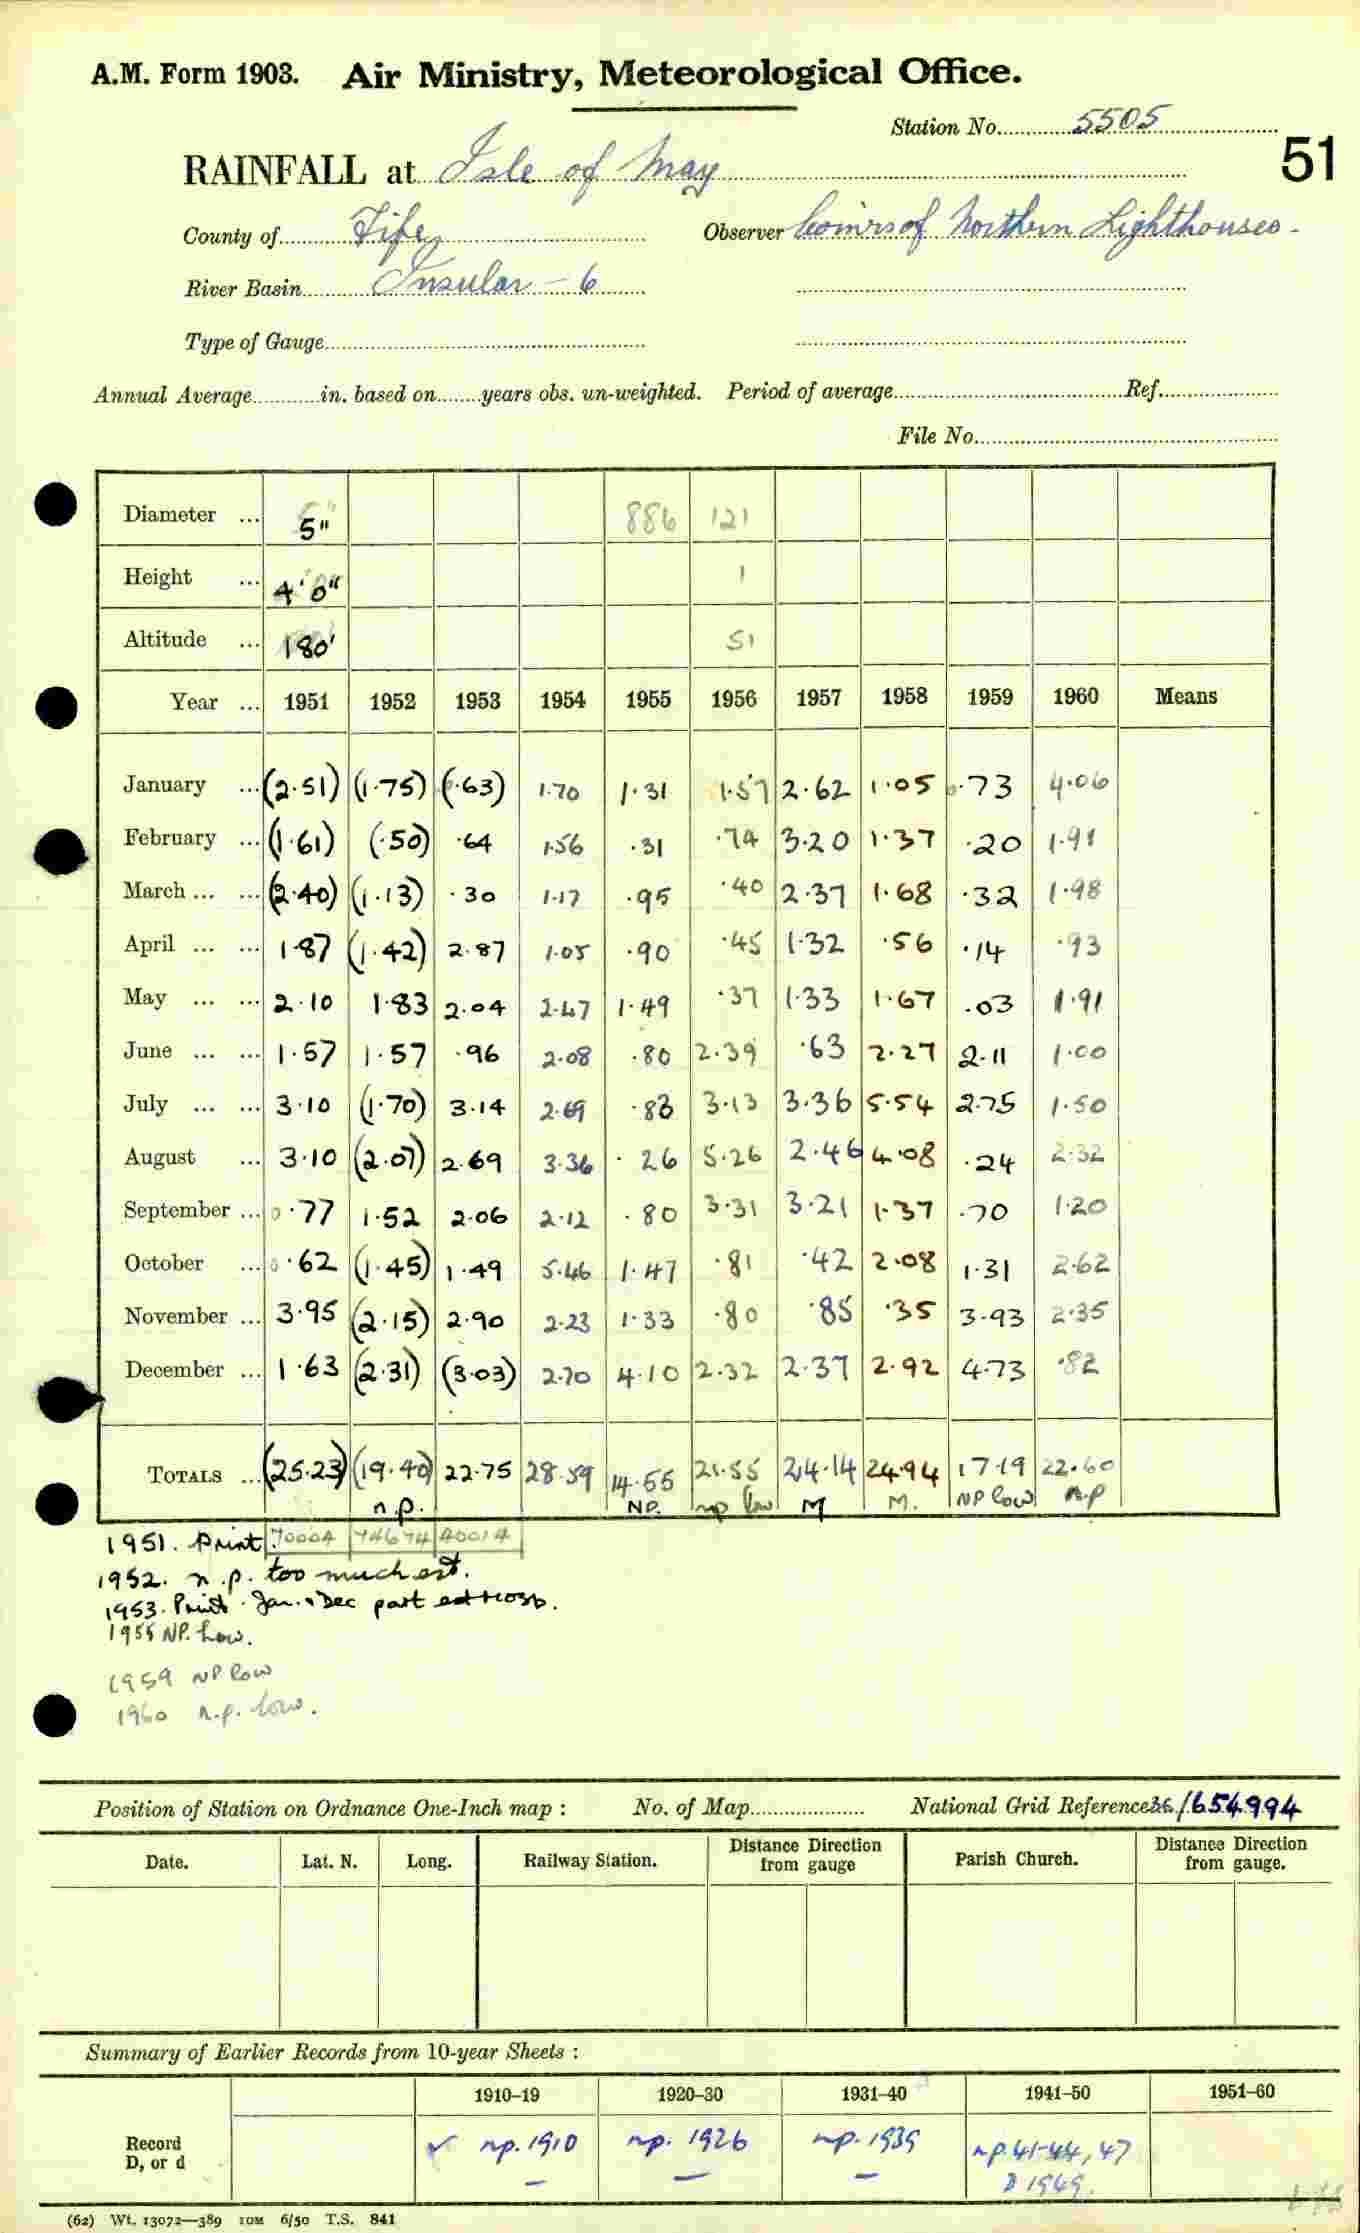 A.M. Form 1903. Air Ministry, Meteorological Office.
Station No. 5505
51
RAINFALL at Isle of May
County of Fife Observer Comrs of Northern Lighthouses -
River Basin Insular - 6
Type of Gauge
Annual Average in. based on years obs. un-weighted. Period of average Ref.
File No.
Diameter ... 5" 886 121
Height ... 4' 0" 1
Altitude ... 180' 51
Year ... 1951 1952 1953 1954 1955 1956 1957 1958 1959 1960 Means
January ... (2.51) (1.75) (.63) 1.70 1.31 1.57 2.62 1.05 0.73 4.06
February ... (1.61) (.50) .64 1.56 .31 .74 3.20 1.37 .20 1.91
March ... ... (2.40) (1.13) .30 1.17 .95 .40 2.37 1.68 .32 1.98
April ... ... 1.87 (1.42) 2.87 1.05 .90 .45 1.32 .56 .14 .93
May ... ... 2.10 1.83 2.04 2.47 1.49 .37 1.33 1.67 .03 1.91
June ... ... 1.57 1.57 .96 2.08 .80 2.39 .63 2.27 2.11 1.00
July ... ... 3.10 (1.70) 3.14 2.69 .83 3.13 3.36 5.54 2.75 1.50
August ... 3.10 (2.07) 2.69 3.36 .26 5.26 2.46 4.08 .24 2.32
September ... 0.77 1.52 2.06 2.12 .80 3.31 3.21 1.37 .70 1.20
October ... 0.62 (1.45) 1.49 5.46 1.47 .81 .42 2.08 1.31 2.62
November ... 3.95 (2.15) 2.90 2.23 1.33 .80 .85 .35 3.93 2.35
December ... 1.63 (2.31) (3.03) 2.70 4.10 2.32 2.37 2.92 4.73 .82
TOTALS ... (25.23) (19.40) 22.75 28.59 14.55 21.55 24.14 24.94 17.19 22.60
n.p. NP. np low M M. NP low n.p
1951. Print. 70004 74674 40014
1952. n.p. too much est.
1953. Print. Jan. & Dec part est
1955 NP. Low.
1959 NP low
1960 n.p. low.
Position of Station on Ordnance One-Inch map : No. of Map National Grid Reference 36/654994
Date. Lat. N. Long. Railway Station. Distance Direction from gauge Parish Church. Distance Direction from gauge.
Summary of Earlier Records from 10-year Sheets :
1910–19 1920–30 1931–40 1941–50 1951–60
Record D, or d ✓ np. 1910 np. 1926 np. 1939 np. 41-44, 47
D 1949.
(62) Wt. 13072—389 10M 6/50 T.S. 841